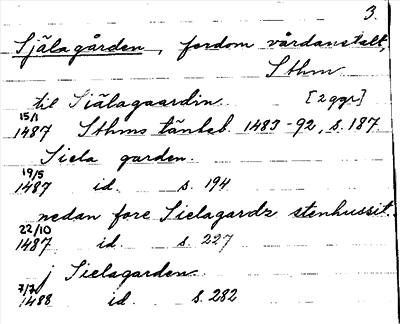 3.
Själagården, fordom vårdanstalt,
Sthm
til Siälagaardin [2 ggr]
15/1 1487 Sthms tänkeb. 1483-92, s. 187
Siela garden.
19/5 1487 id. s. 194
nedan fore Sielagardz stenhussit.
22/10 1487 id. s. 227
j Sielagarden
7/7 1488 id. s. 282